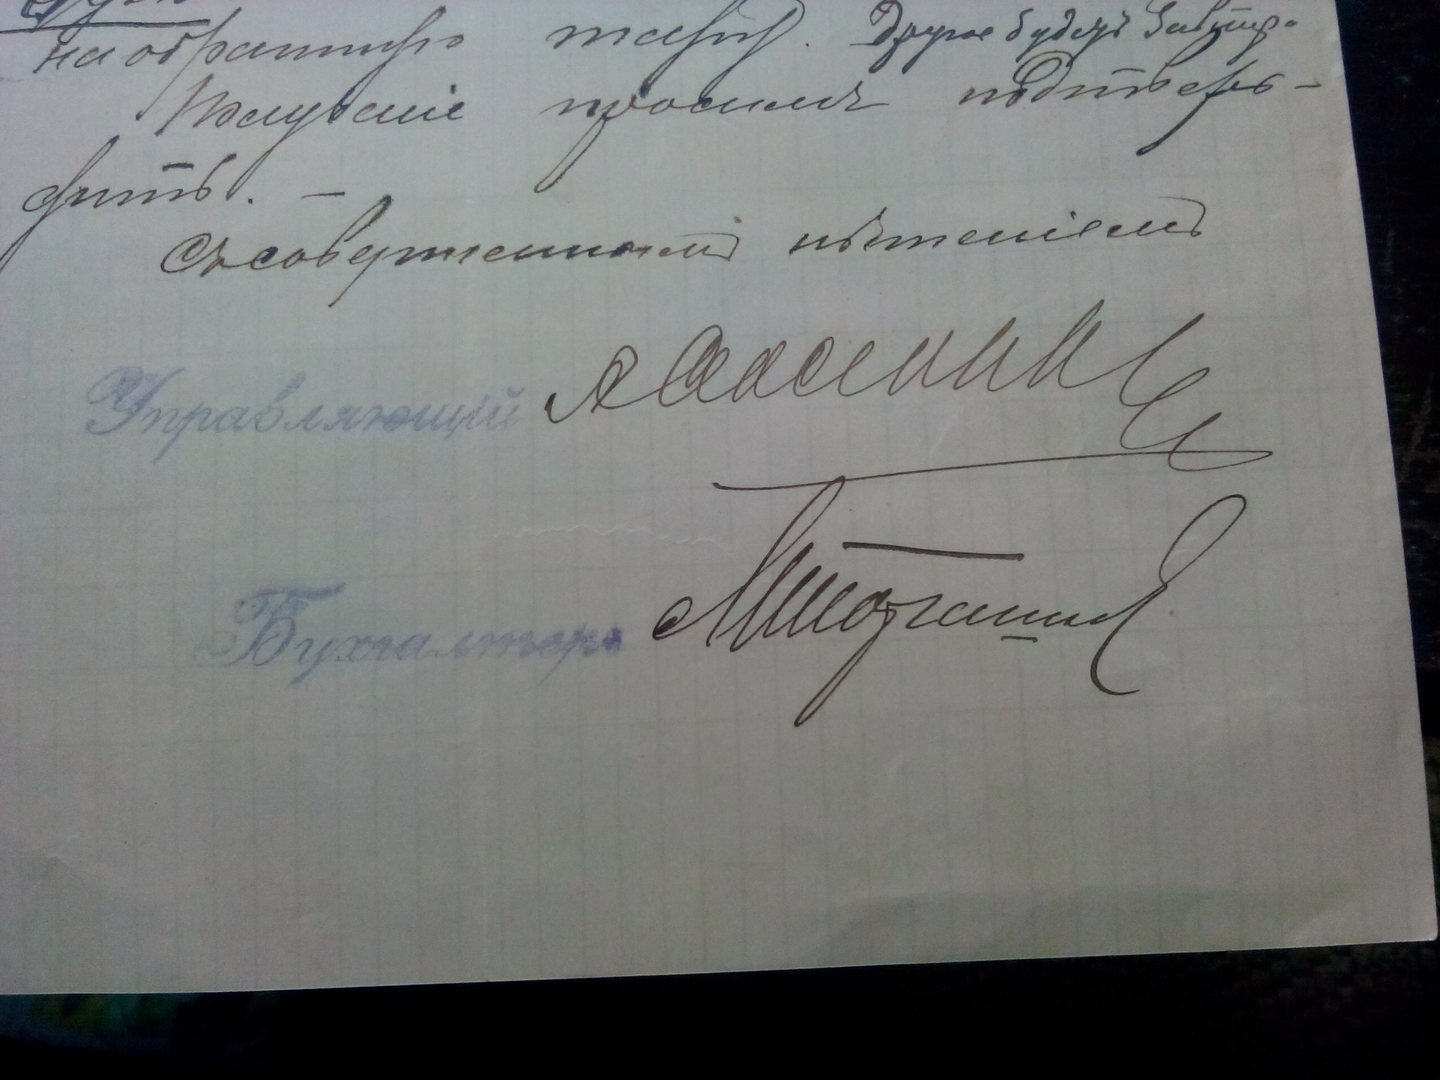 на обратную тару. Другое будетъ завтра
Полученіе просимъ подтвер-
дить. —
Съ совершеннымъ почтеніемъ
Управляющій
Бухгалтеръ